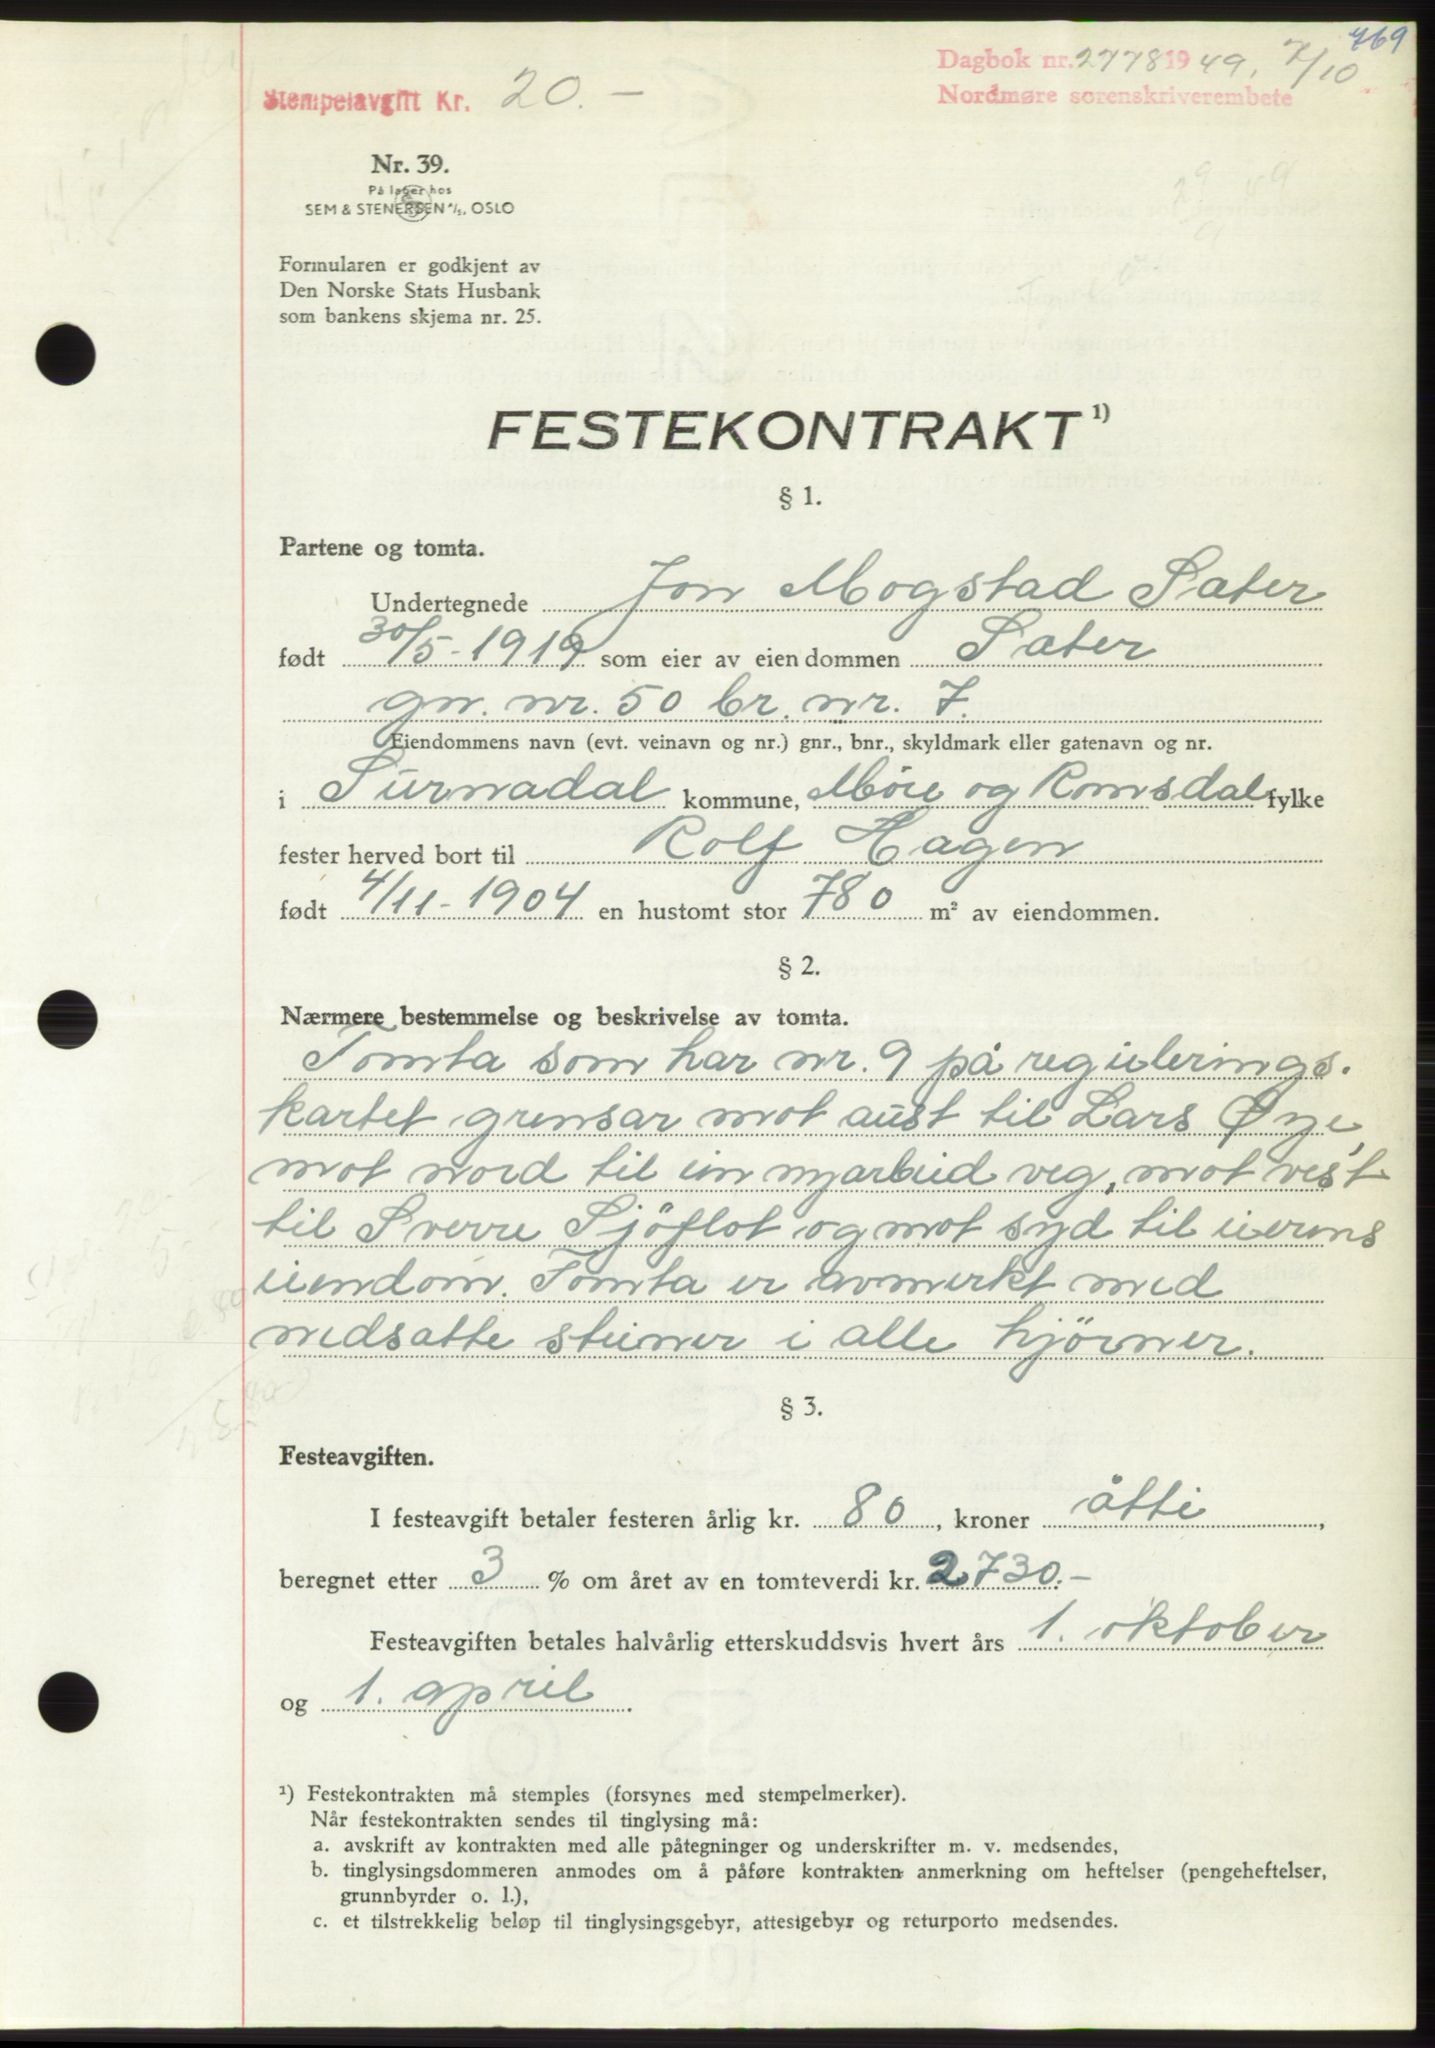 769
Dagbok nr. 2778 1949, 7/10
Nordmøre sorenskriverembete
Stempelavgift Kr. 20.-
Nr. 39.
På lager hos
SEM & STENERSEN A/S, OSLO
Formularen er godkjent av
Den Norske Stats Husbank
som bankens skjema nr. 25.
FESTEKONTRAKT 1)
§ 1.
Partene og tomta.
Undertegnede Jon Mogstad Sæter
født 30/5-1919 som eier av eiendommen Sæter
gn. nr. 50 br. nr. 7.
Eiendommens navn (evt. veinavn og nr.) gnr., bnr., skyldmark eller gatenavn og nr.
i Surnadal kommune, Møre og Romsdal fylke
fester herved bort til Rolf Hagen
født 4/11-1904 en hustomt stor 780 m² av eiendommen.
§ 2.
Nærmere bestemmelse og beskrivelse av tomta.
Tomta som har nr. 9 på regulerings-
kartet grensar mot aust til Lars Øye,
mot nord til ein nyarbeid veg, mot vest
til Sverre Sjöflot og mot syd til eierens
eiendom. Tomta er avmerkt med
nedsatte steiner i alle hjörner.
§ 3.
Festeavgiften.
I festeavgift betaler festeren årlig kr. 80, kroner åtti,
beregnet etter 3 % om året av en tomteverdi kr. 2730.-
Festeavgiften betales halvårlig etterskuddsvis hvert års 1. oktober
og 1. april.
1) Festekontrakten må stemples (forsynes med stempelmerker).
Når festekontrakten sendes til tinglysing må:
a. avskrift av kontrakten med alle påtegninger og underskrifter m. v. medsendes,
b. tinglysingsdommeren anmodes om å påføre kontrakten anmerkning om heftelser (pengeheftelser,
grunnbyrder o. l.),
c. et tilstrekkelig beløp til tinglysingsgebyr, attestgebyr og returporto medsendes.